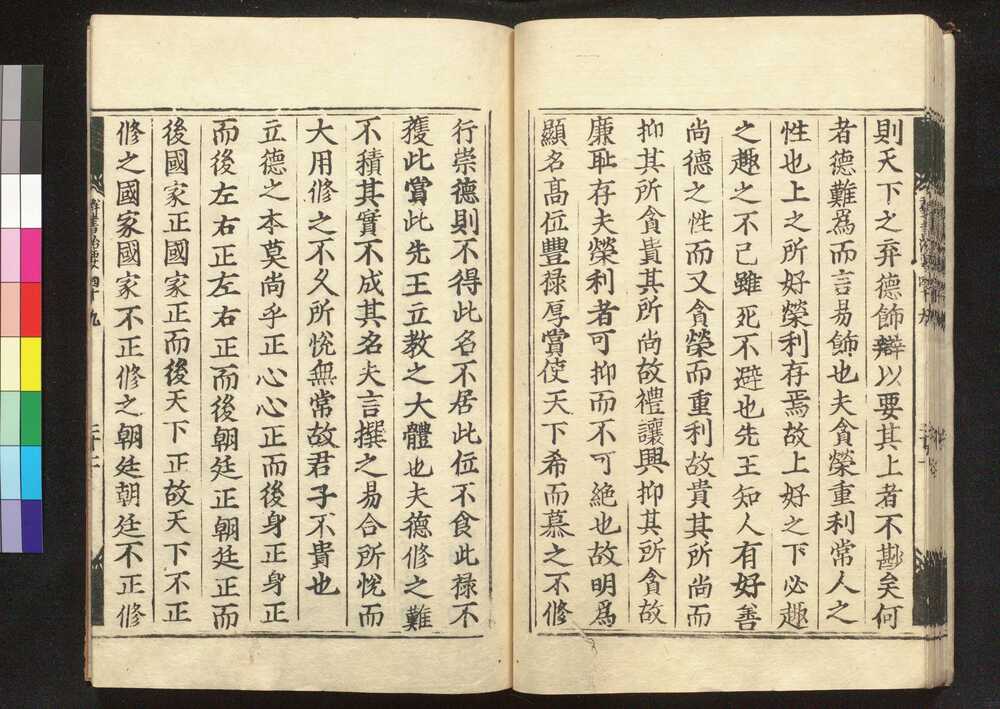 則天下之弃德飾辯以要其上者不尠矣何
者德難爲而言易飾也夫貪榮重利常人之
性也上之所好榮利存焉故上好之下必趣
之趣之不已雖死不避也先王知人有好善
尚德之性而又貪榮而重利故貴其所尚而
抑其所貪貴其所尚故禮讓興抑其所貪故
廉耻存夫榮利者可抑而不可絶也故明爲
顯名髙位豐禄厚賞使天下希而慕之不修
行崇德則不得此名不居此位不食此禄不
獲此賞此先王立教之大體也夫德修之難
不積其實不成其名夫言撰之易合所恱而
大用修之不久所恱無常故君子不貴也
立德之本莫尚乎正心心正而後身正身正
而後左右正左右正而後朝廷正朝廷正而
後國家正國家正而後天下正故天下不正
修之國家國家不正修之朝廷朝廷不正修
群書治要 四十九